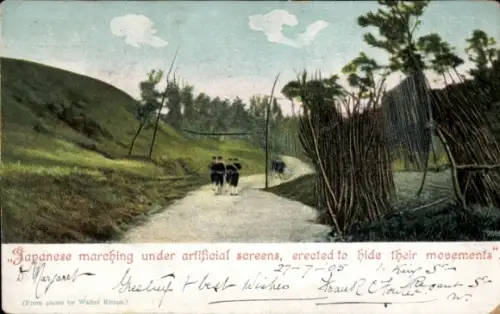 "Japanese marching under artificial screens, erected to hide their movements".
27-7-05 1. King St
Dr Margaret Greeting & best Wishes
(From photo by Walter Kirton.)